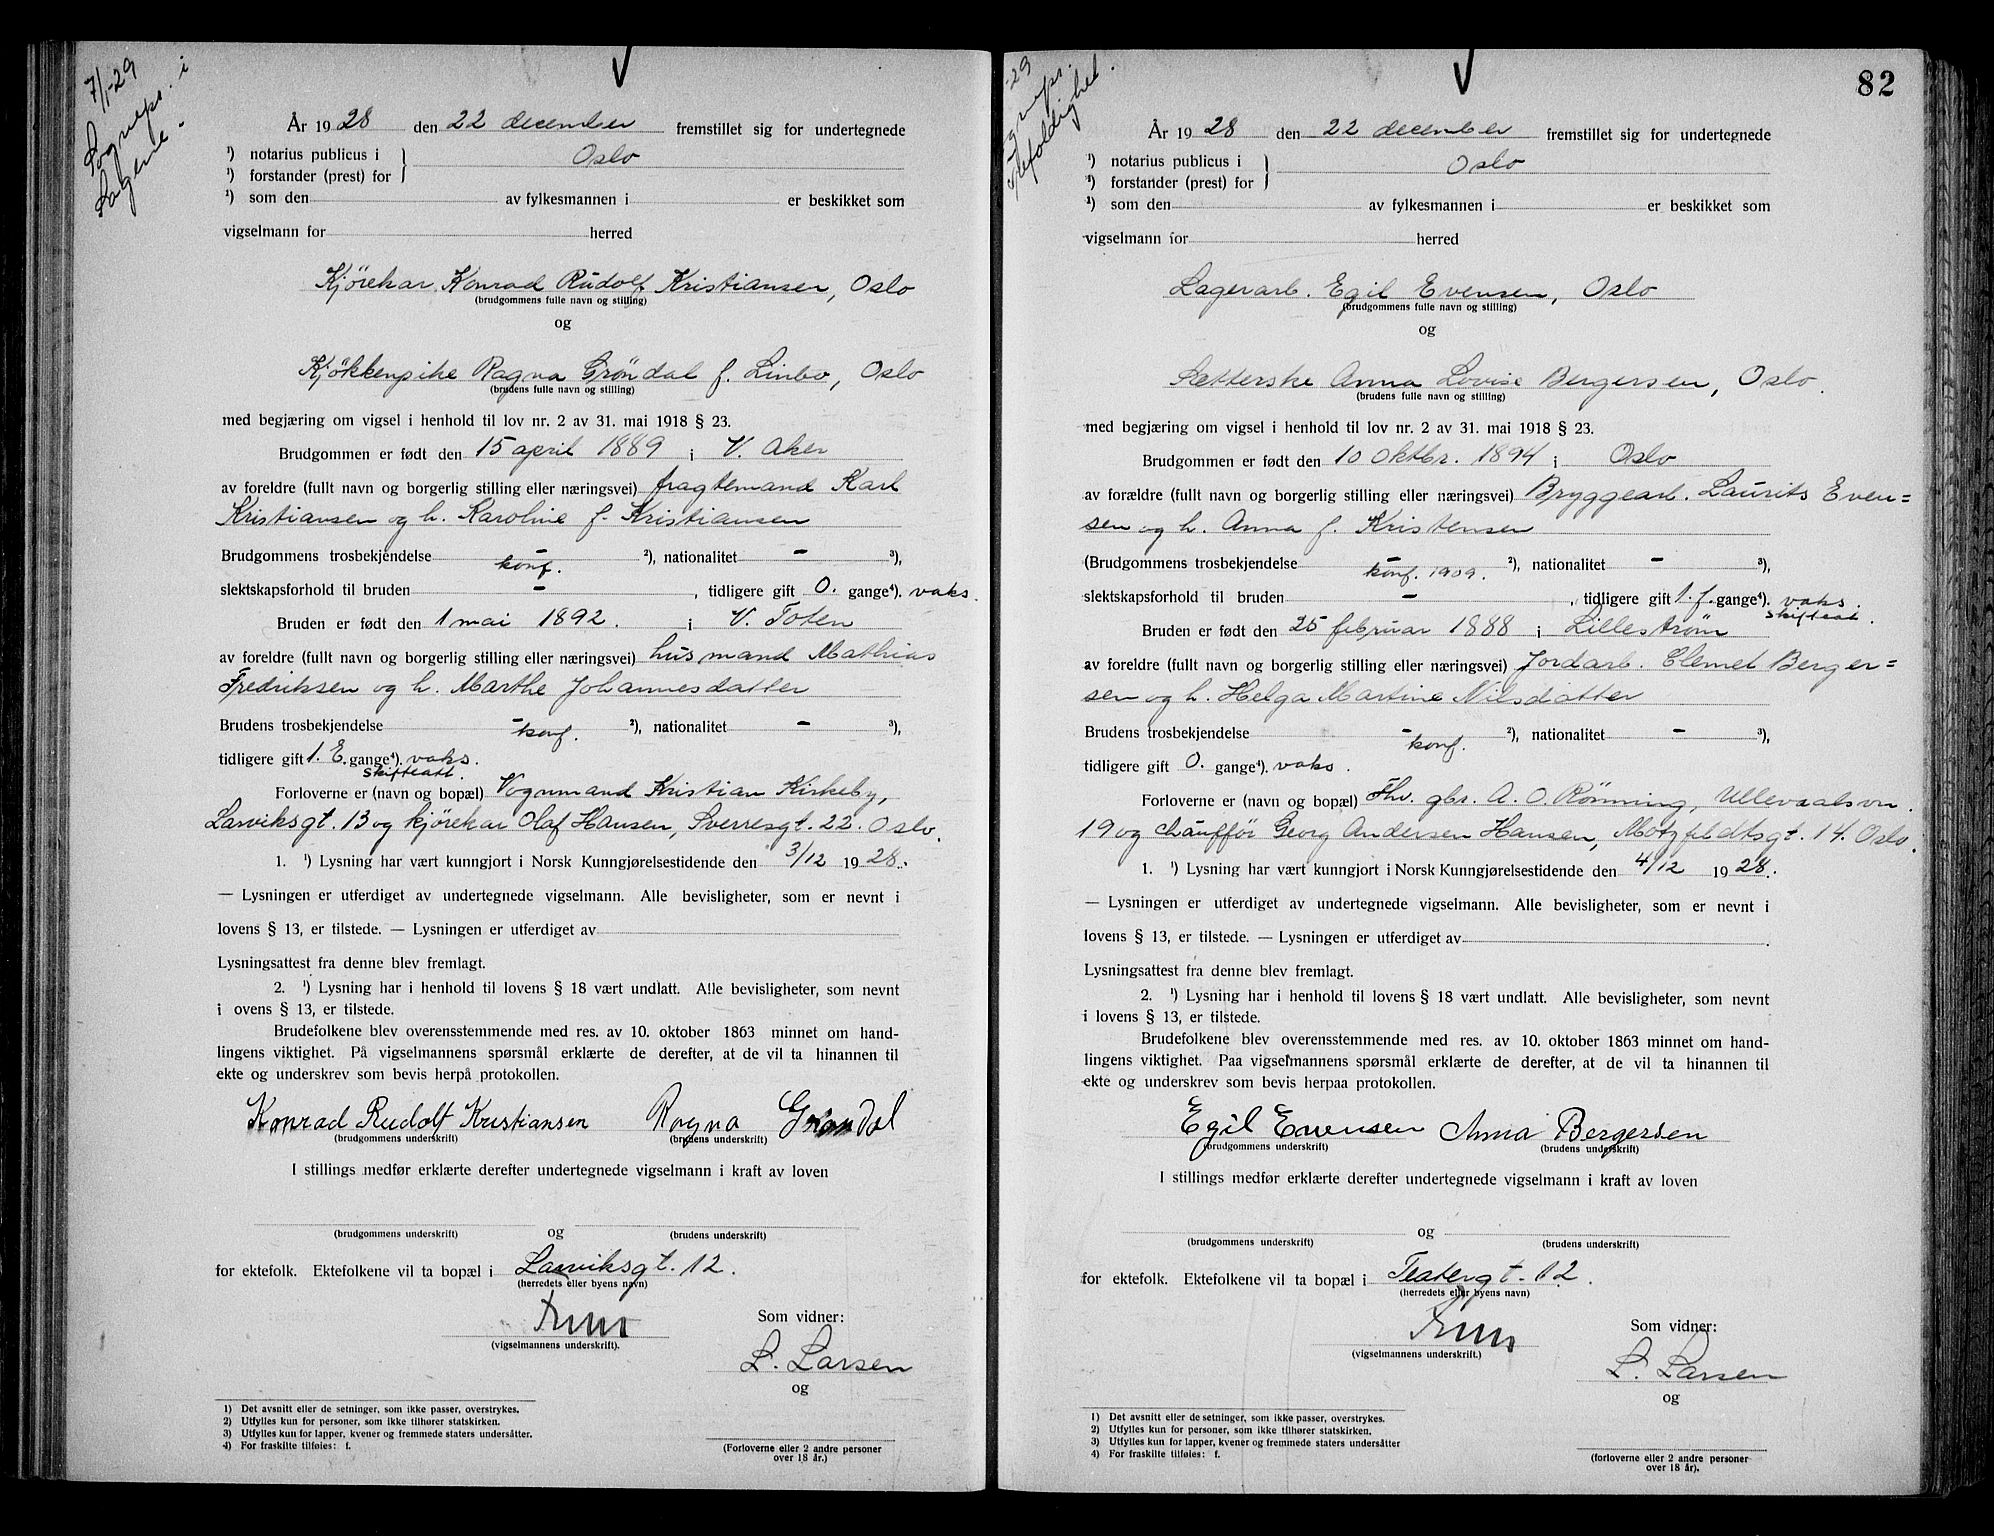 7/1-29
Sogneps. i
År 1928 den 22 december fremstillet sig for undertegnede
¹) notarius publicus i } Oslo
¹) forstander (prest) for
¹) som den av fylkesmannen i er beskikket som
vigselmann for herred
Kjørekar Konrad Rudolf Kristiansen, Oslo
(brudgommens fulle navn og stilling)
og
Kjøkkenpike Ragna Grøndal f. Linbo, Oslo
(brudens fulle navn og stilling)
med begjæring om vigsel i henhold til lov nr. 2 av 31. mai 1918 § 23.
Brudgommen er født den 15 april 1889 i V. Aker
av foreldre (fullt navn og borgerlig stilling eller næringsvei) fragtemand Karl
Kristiansen og h. Karoline f. Kristiansen
Brudgommens trosbekjendelse - ²), nationalitet - ³),
konf.
slektskapsforhold til bruden - , tidligere gift 0. gange⁴). vaks.
Bruden er født den 1 mai 1892. i V. Toten
av foreldre (fullt navn og borgerlig stilling eller næringsvei) husmand Mathias
Fredriksen og h. Marthe Johannesdatter
Brudens trosbekjendelse - ²), nationalitet - ³),
konf.
tidligere gift 1. E. gange⁴). vaks.
skifteatt.
Forloverne er (navn og bopæl) Vognmand Kristian Kirkeby,
Larviksgt. 13 og kjørekar Olaf Hansen, Sverresgt. 22. Oslo.
1. ¹) Lysning har vært kunngjort i Norsk Kunngjørelsestidende den 3/12 1928.
— Lysningen er utferdiget av undertegnede vigselmann. Alle bevisligheter, som er nevnt i
lovens § 13, er tilstede. — Lysningen er utferdiget av
Lysningsattest fra denne blev fremlagt.
2. ¹) Lysning har i henhold til lovens § 18 vært undlatt. Alle bevisligheter, som nevnt
i ovens § 13, er tilstede.
Brudefolkene blev overensstemmende med res. av 10. oktober 1863 minnet om hand-
lingens viktighet. På vigselmannens spørsmål erklærte de derefter, at de vil ta hinannen til
ekte og underskrev som bevis herpå protokollen.
Konrad Rudolf Kristiansen Ragna Grøndal
(brudgommens underskrift) (brudens underskrift)
I stillings medfør erklærte derefter undertegnede vigselmann i kraft av loven
og
(brudgommens underskrift) (brudens underskrift)
for ektefolk. Ektefolkene vil ta bopæl i Larviksgt. 12.
(herredets eller byens navn)
(vigselmannens underskrift).
Som vidner:
L. Larsen
og
(Forloverne eller 2 andre personer
over 18 år.)
1) Det avsnitt eller de setninger, som ikke passer, overstrykes.
2) Utfylles kun for personer, som ikke tilhører statskirken.
3) Utfylles kun for lapper, kvener og fremmede staters undersåtter.
4) For fraskilte tilføies: f.
82
-29
År 1928 den 22 december fremstillet sig for undertegnede
¹) notarius publicus i } Oslo
¹) forstander (prest) for
¹) som den av fylkesmannen i er beskikket som
vigselmann for herred
Lagerarb. Egil Evensen, Oslo
(brudgommens fulle navn og stilling)
og
Sætterske Anna Lovise Bergersen, Oslo.
(brudens fulle navn og stilling)
med begjæring om vigsel i henhold til lov nr. 2 av 31. mai 1918 § 23.
Brudgommen er født den 10 oktbr. 1894 i Oslo
av forældre (fullt navn og borgerlig stilling eller næringsvei) Bryggearb. Laurits Even=
sen og h. Anna f. Kristensen
(Brudgommens trosbekjendelse - ²), nationalitet - ³),
konf. 1909.
slektskapsforhold til bruden - , tidligere gift 1. f. gange⁴). vaks.
skifteatt.
Bruden er født den 25 februar 1888 i Lillestrøm
av foreldre (fullt navn og borgerlig stilling eller næringsvei) Jordarb. Clemet Berger=
sen og h. Helga Martine Nilsdatter
Brudens trosbekjendelse - ²), nationalitet - ³),
konf.
tidligere gift 0. gange⁴). vaks.
Forloverne er (navn og bopæl) Fhv. gbr. A. O. Rønning, Ullevaalsvn.
19 og chauffør Georg Andersen Hansen, Motzfeldtsgt. 14. Oslo.
1. ¹) Lysning har vært kunngjort i Norsk Kunngjørelsestidende den 4/12 1928.
— Lysningen er utferdiget av undertegnede vigselmann. Alle bevisligheter, som er nevnt i
lovens § 13, er tilstede. — Lysningen er utferdiget av
Lysningsattest fra denne blev fremlagt.
2. ¹) Lysning har i henhold til lovens § 18 vært undlatt. Alle bevisligheter, som nevnt
i lovens § 13, er tilstede.
Brudefolkene blev overensstemmende med res. av 10. oktober 1863 minnet om hand-
lingens viktighet. Paa vigselmannens spørsmål erklærte de derefter, at de vil ta hinannen til
ekte og underskrev som bevis herpaa protokollen.
Egil Evensen Anna Bergersen
(brudgommens underskrift) (brudens underskrift)
I stillings medfør erklærte derefter undertegnede vigselmann i kraft av loven
og
(brudgommens underskrift) (brudens underskrift)
for ektefolk. Ektefolkene vil ta bopæl i Teatergt. 12.
(herredets eller byens navn)
(vigselmannens underskrift.)
Som vidner:
L. Larsen
og
(forloverne eller 2 andre personer
over 18 år).
1) Det avsnitt eller de setninger, som ikke passer, overstrykes.
2) Utfylles kun for personer, som ikke tilhører statskirken.
3) Utfylles kun for lapper, kvener og fremmede staters undersåtter
4) For fraskilte tilføies: f.